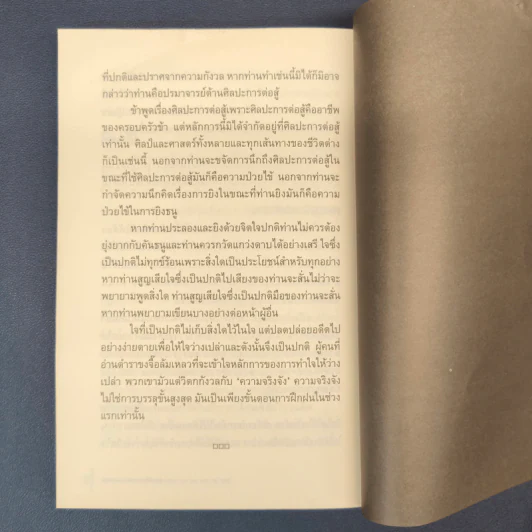 ที่ปกติและปราศจากความกังวล หากท่านทำเช่นนี้มิได้ก็มิอาจ
กล่าวว่าท่านคือปรมาจารย์ด้านศิลปะการต่อสู้
ข้าพูดเรื่องศิลปะการต่อสู้เพราะศิลปะการต่อสู้คืออาชีพ
ของครอบครัวข้า แต่หลักการนี้มิได้จำกัดอยู่ที่ศิลปะการต่อสู้
เท่านั้น ศิลป์และศาสตร์ทั้งหลายและทุกเส้นทางของชีวิตต่าง
ก็เป็นเช่นนี้ นอกจากท่านจะขจัดการนึกถึงศิลปะการต่อสู้ใน
ขณะที่ใช้ศิลปะการต่อสู้มันก็คือความป่วยไข้ นอกจากท่านจะ
กำจัดความนึกคิดเรื่องการยิงในขณะที่ท่านยิงมันก็คือความ
ป่วยไข้ในการยิงธนู
หากท่านประลองและยิงด้วยจิตใจปกติท่านไม่ควรต้อง
ยุ่งยากกับคันธนูและท่านควรกวัดแกว่งดาบได้อย่างเสรี ใจซึ่ง
เป็นปกติไม่ทุกข์ร้อนเพราะสิ่งใดเป็นประโยชน์สำหรับทุกอย่าง
หากท่านสูญเสียใจซึ่งเป็นปกติไปเสียงของท่านจะสั่นไม่ว่าจะ
พยายามพูดสิ่งใด ท่านสูญเสียใจซึ่งเป็นปกติมือของท่านจะสั่น
หากท่านพยายามเขียนบางอย่างต่อหน้าผู้อื่น
ใจที่เป็นปกติไม่เก็บสิ่งใดไว้ในใจ แต่ปลดปล่อยอดีตไป
อย่างง่ายดายเพื่อให้ใจว่างเปล่าและดังนั้นจึงเป็นปกติ ผู้คนที่
อ่านตำราขงจื๊อล้มเหลวที่จะเข้าใจหลักการของการทำใจให้ว่าง
เปล่า พวกเขามัวแต่วิตกกังวลกับ "ความจริงจัง" ความจริงจัง
ไม่ใช่การบรรลุขั้นสูงสุด มันเป็นเพียงขั้นตอนการฝึกฝนในช่วง
แรกเท่านั้น